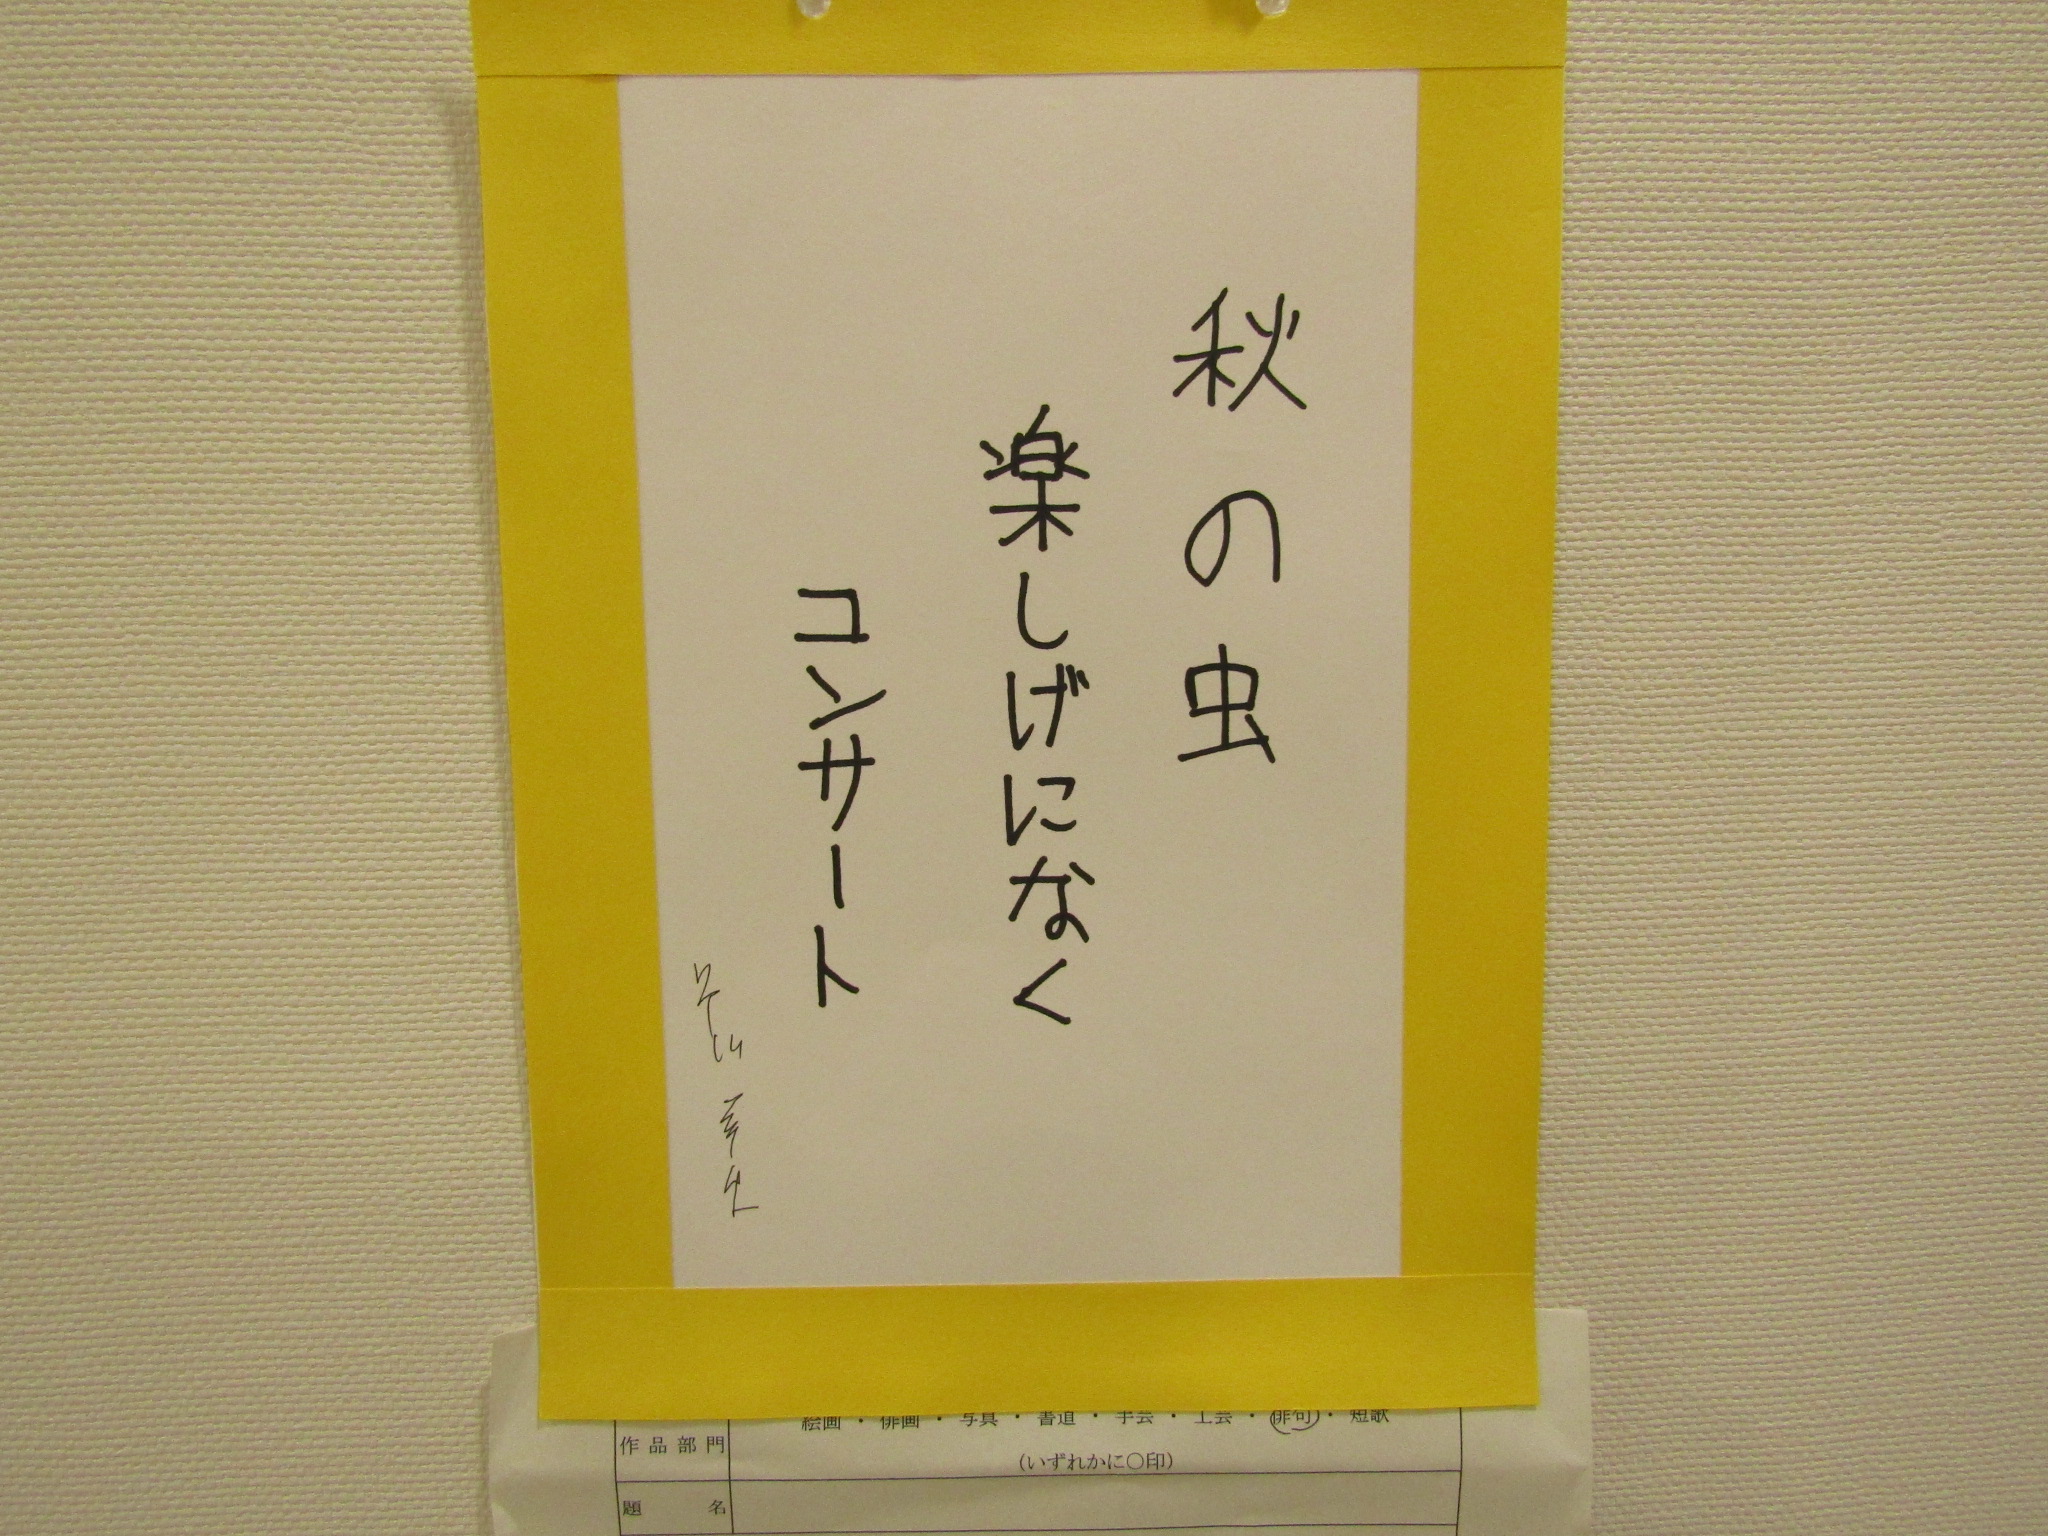 秋の虫
楽しげになく
コンサート
絵画・俳画・写真・書道・手芸・工芸・俳句・短歌
作品部門
(いずれかに〇印)
題名